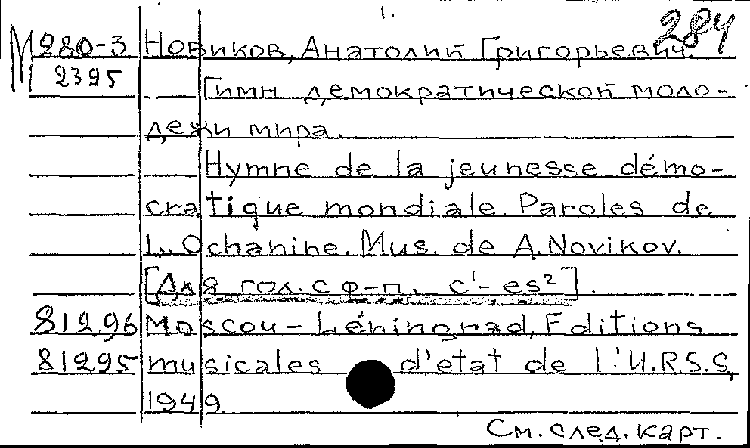 1.
284
М 280-3 Новиков, Анатолий Григорьевич.
2395 Гимн демократической моло-
дежи мира.
Hymne de la jeunesse démo-
cratique mondiale. Paroles de
L. Ochanine. Mus. de A. Novikov.
[Для гол. с ф-п. c¹-es²].
81296 Moscou-Léningrad, Editions
81295 musicales d'état de l'U.R.S.S,
1949.
См. след. карт.